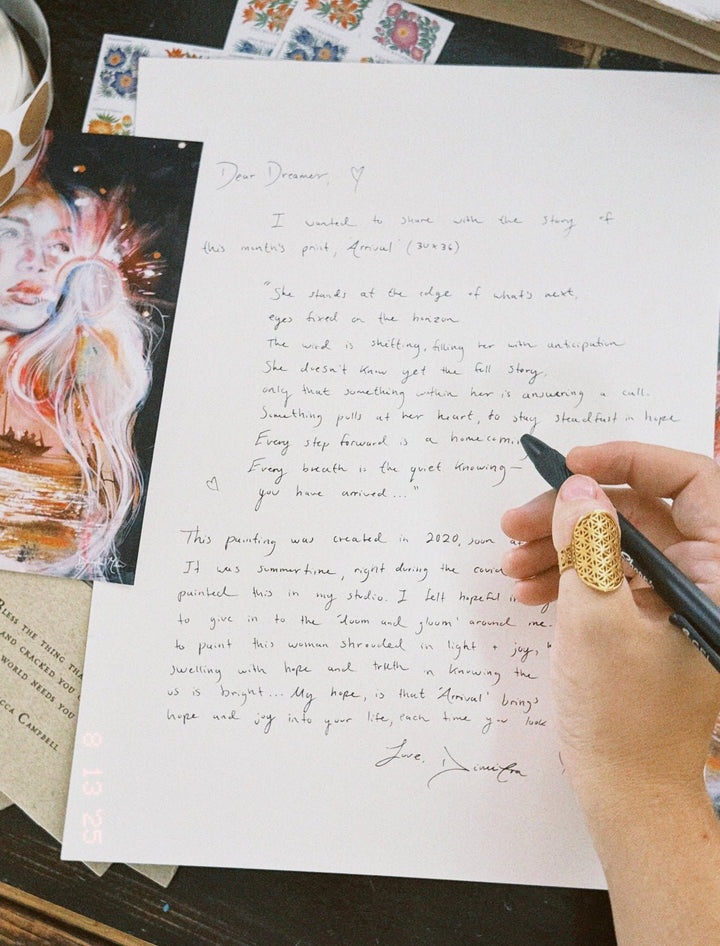 Dear Dreamer, ♡
I wanted to share with the story of
this month's print, 'Arrival' (30x36)
"She stands at the edge of what's next,
eyes fixed on the horizon
The wind is shifting, filling her with anticipation
She doesn't know yet the full story,
only that something within her is answering a call.
Something pulls at her heart, to stay steadfast in hope
Every step forward is a homecomi
Every breath is the quiet knowing—
you have arrived..."
This painting was created in 2020, soon
It was summertime, right during the covid
painted this in my studio. I felt hopeful in
to give in to the 'doom and gloom' around me.
to paint this woman shrouded in light + joy,
swelling with hope and truth in knowing the
us is bright... My hope, is that 'Arrival' brings
hope and joy into your life, each time you look
Love, Dimitra
BLESS THE THING THA
AND CRACKED YOU
WORLD NEEDS YOU
CCA CAMPBELL
8 13 '25